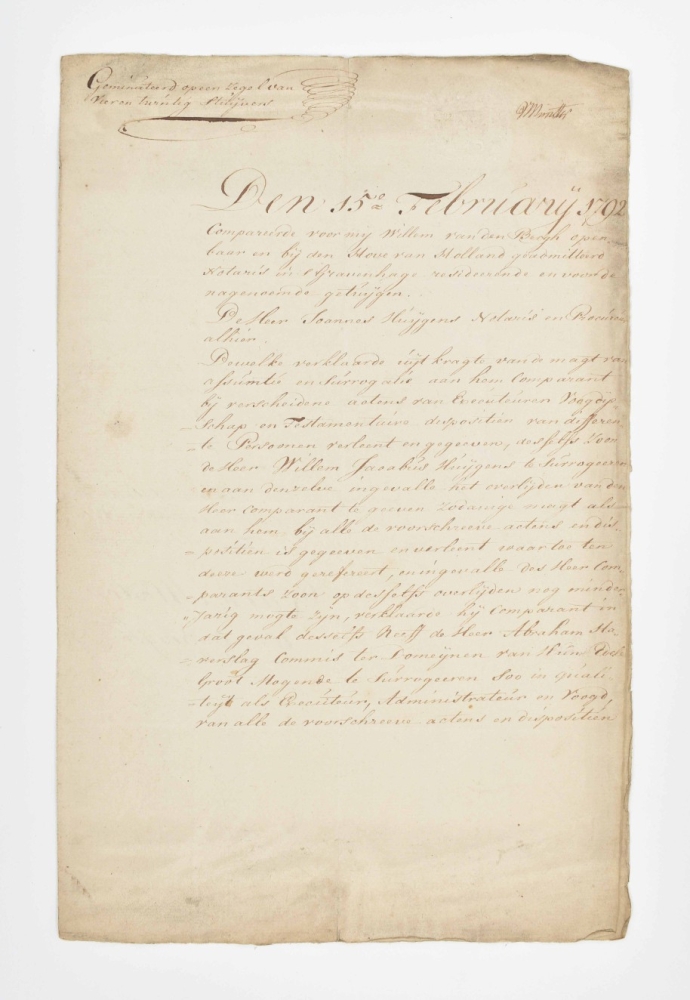 Geminuteerd op een zegel van
Vier en twintig Stuijvers
Den 15e February 1792
Compareerde voor mij Willem van den Bergh open
baar en bij den Hove van Holland geadmitteerd
Notaris in 'sGravenhage resideerende en voor de
nagenoemde getuijgen.
De Heer Joannes Huijgens Notaris en Procureur
alhier.
Dewelke verklaarde uijt kragte van de magt van
assumtie en surrogatie aan hem Comparant
bij verscheidene actens van Executeuren Voogdij
schap en Testamentaire dispositien van differen
te Persoonen verleent en gegeeven, desselfs Zoon
de Heer Willem Jacobus Huijgens te surrogeeren
en aan denzelve ingevalle het overlijden van den
Heer Comparant te geeven zodanige magt als
aan hem bij alle de voorschreeve actens en dis
positien is gegeeven en verleent waartoe ten
deeze werd gerefereert, en ingevalle des Heer Com
parants Zoon op desselfs overlijden nog minder
Jarig mogte zijn, verklaarde hij Comparant in
dat geval desselfs Neeff de Heer Abraham Ha
verslag Commis ter Domeijnen van Hun
Groot Mogende te surrogeeren soo in quali
teijt als Executeur, Administrateur en Voogd,
van alle de voorschreeve actens en dispositien